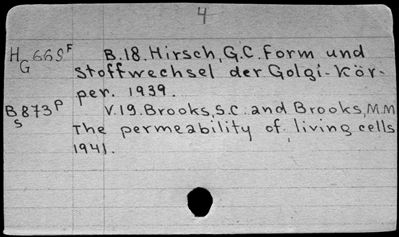 4
H 669F B.18. Hirsch, G.C. Form und
G Stoffwechsel der Golgi-Kör-
per. 1939.
B873P V.19. Brooks, S.C. and Brooks, M.M
S The permeability of living cells
1941.